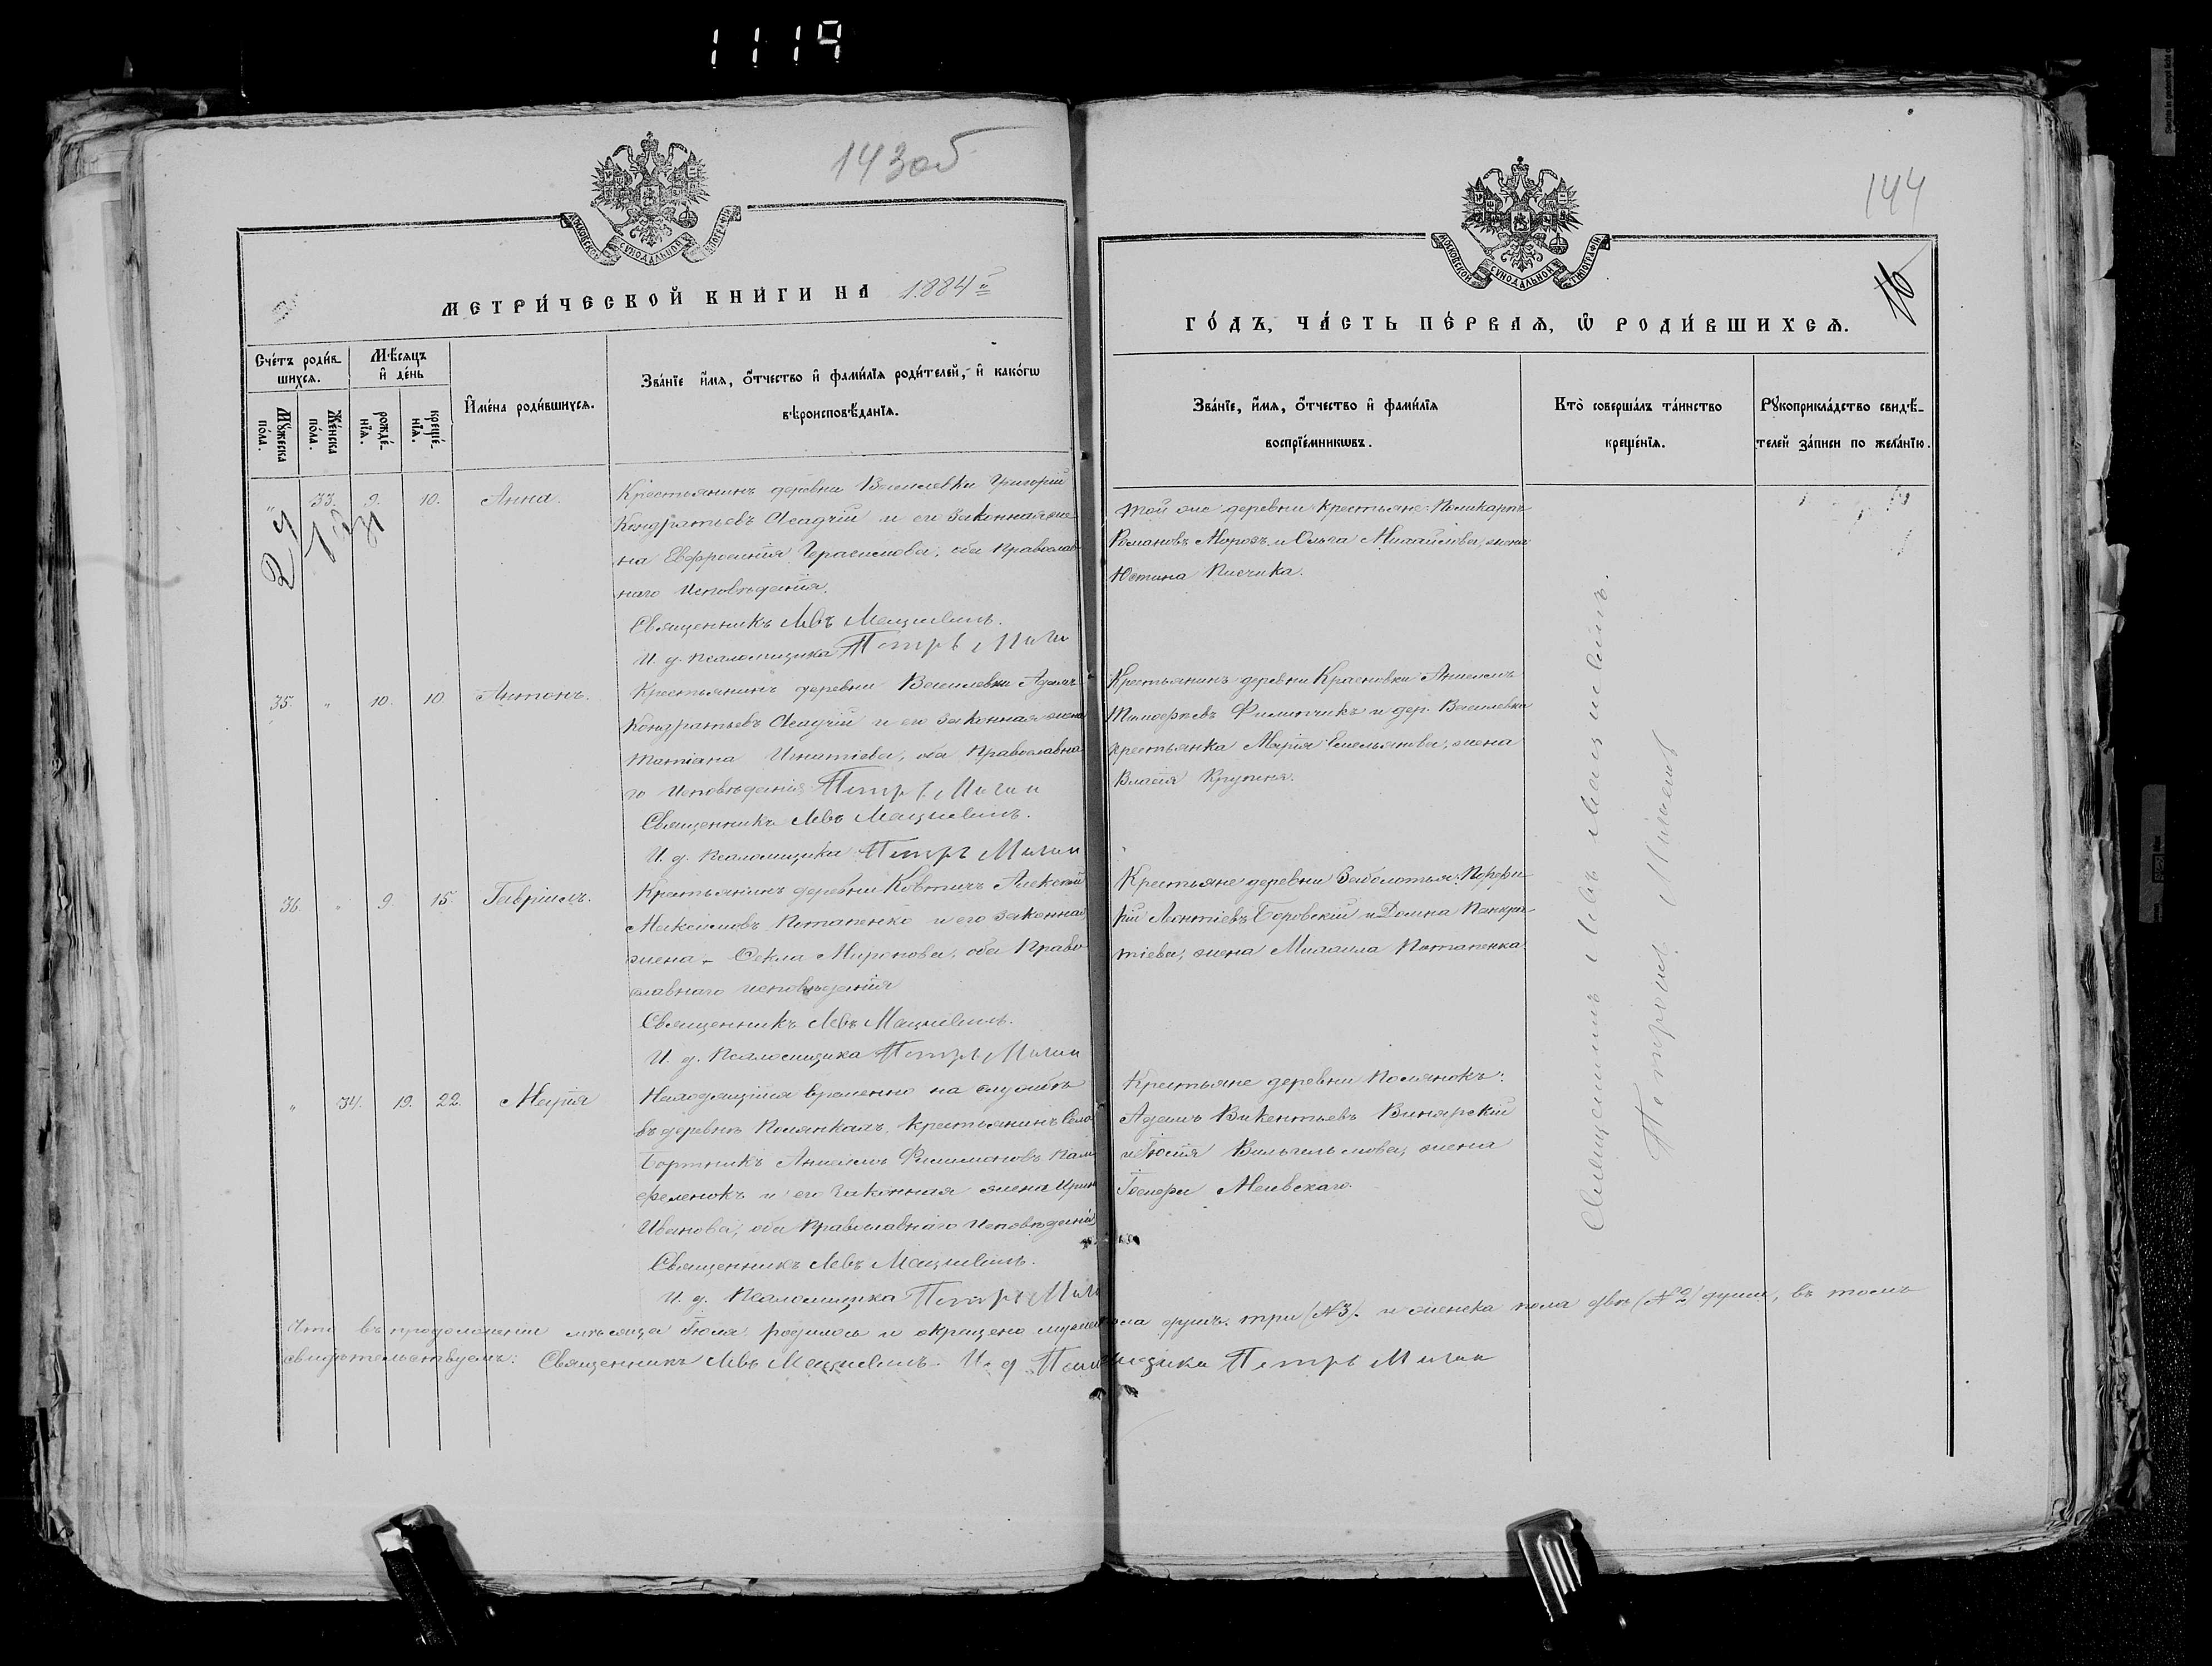 1119
143об
144
МОСКОВСКОЙ СѴНОДАЛЬНОЙ ТИПОГРАФІИ
МОСКОВСКОЙ СѴНОДАЛЬНОЙ ТИПОГРАФІИ
16
МЕТРИ́ЧЕСКОЙ КНИ́ГИ НА 1884й
ГО́ДЪ, ЧА́СТЬ ПЕ́РВАЯ, Ѡ РОДИ́ВШИХСЯ.
Сче́тъ роди́в-
шихся.
Мѣ́сяцъ
и де́нь
Мꙋ́жеска
по́ла.
Же́нска
по́ла.
рожде́-
нїя.
креще́-
нїя.
И҆мена̀ роди́вшихся.
Зва́нїе и҆́мя, ѻ҆́тчество и҆ фами́лїя роди́телей, и҆ како́гѡ
вѣроисповѣ́данїя.
Зва́нїе, и҆́мя, ѻ҆́тчество и҆ фами́лїя
воспрїе́мникѡвъ.
Кто̀ соверша́лъ та́инство
креще́нїя.
Рꙋкоприкла́дство свидѣ́-
телей за́писи по жела́нїю.
" 33. 9. 10. Анна.
Крестьянинъ деревни Василевки Григорій
Кондратьевъ Осадчій и его законная же
на Евфросинія Герасимова, оба православ
наго исповѣданія.
Священникъ Левъ Мацкевичъ.
И. д. псаломщика Петръ
той же деревни крестьяне: Поликарпъ
Романовъ Морозъ и Ольга Михайлова, жена
Юстина Писчика.
35. " 10. 10 Антонъ.
Крестьянинъ деревни Василевки Адамъ
Кондратьевъ Осадчій и его законная жена
Татіана Игнатіева, оба православна
го исповѣданія Петръ
Священникъ Левъ Мацкевичъ.
И. д. псаломщика Петръ
Крестьянинъ деревни Красновки Анисимъ
Тимофеевъ Филипчикъ и дер. Василевки
крестьянка Марія Емельянова, жена
Власія Крупеня.
36. " 9. 15. Гавріилъ.
Крестьянинъ деревни Ковтичъ Алексѣй
Максимовъ Потапенко и его законная
жена Ѳекла Миронова, оба право
славнаго исповѣданія
Священникъ Левъ Мацкевичъ.
И. д. псаломщика Петръ
Крестьяне деревни Заболотья: Порфи
рій Леонтіевъ Боровскій и Домна Панкра
тіева, жена Михаила Потапенка.
" 34. 19. 22. Марія
Находящійся временно на службѣ
въ деревнѣ Полянкахъ, крестьянинъ
Бортникъ Анисимъ Филимоновъ
и его законная жена Ирина
Иванова, оба православнаго исповѣданія
Священникъ Левъ Мацкевичъ.
И. д. псаломщика Петръ
Крестьяне деревни Полянокъ:
Адамъ Викентьевъ Винярскій
и Вильгельмова, жена
Священникъ Левъ Мацкевичъ.
Что въ продолженіи мѣсяца Іюля родилось и окрещено мужеска пола душъ три (№3). и женска пола двѣ (№2) души, въ томъ
свидѣтельствуемъ: Священникъ Левъ Мацкевичъ. И. д. Псаломщика Петръ